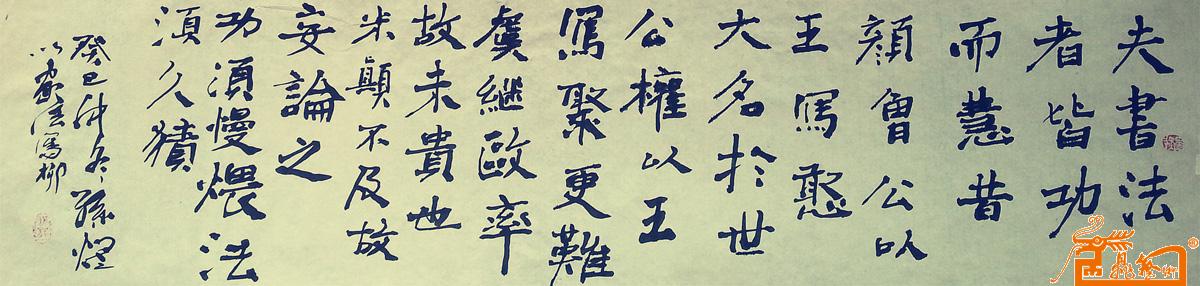 夫書法
者皆功
而慧昔
顔魯公以
王寫憨
大名於世
公權以王
寫聚更難
虞繼歐率
故未貴也
米顛不及故
妄論之
功須慢煨法
須久積
癸巳仲冬孫
以家法寫柳